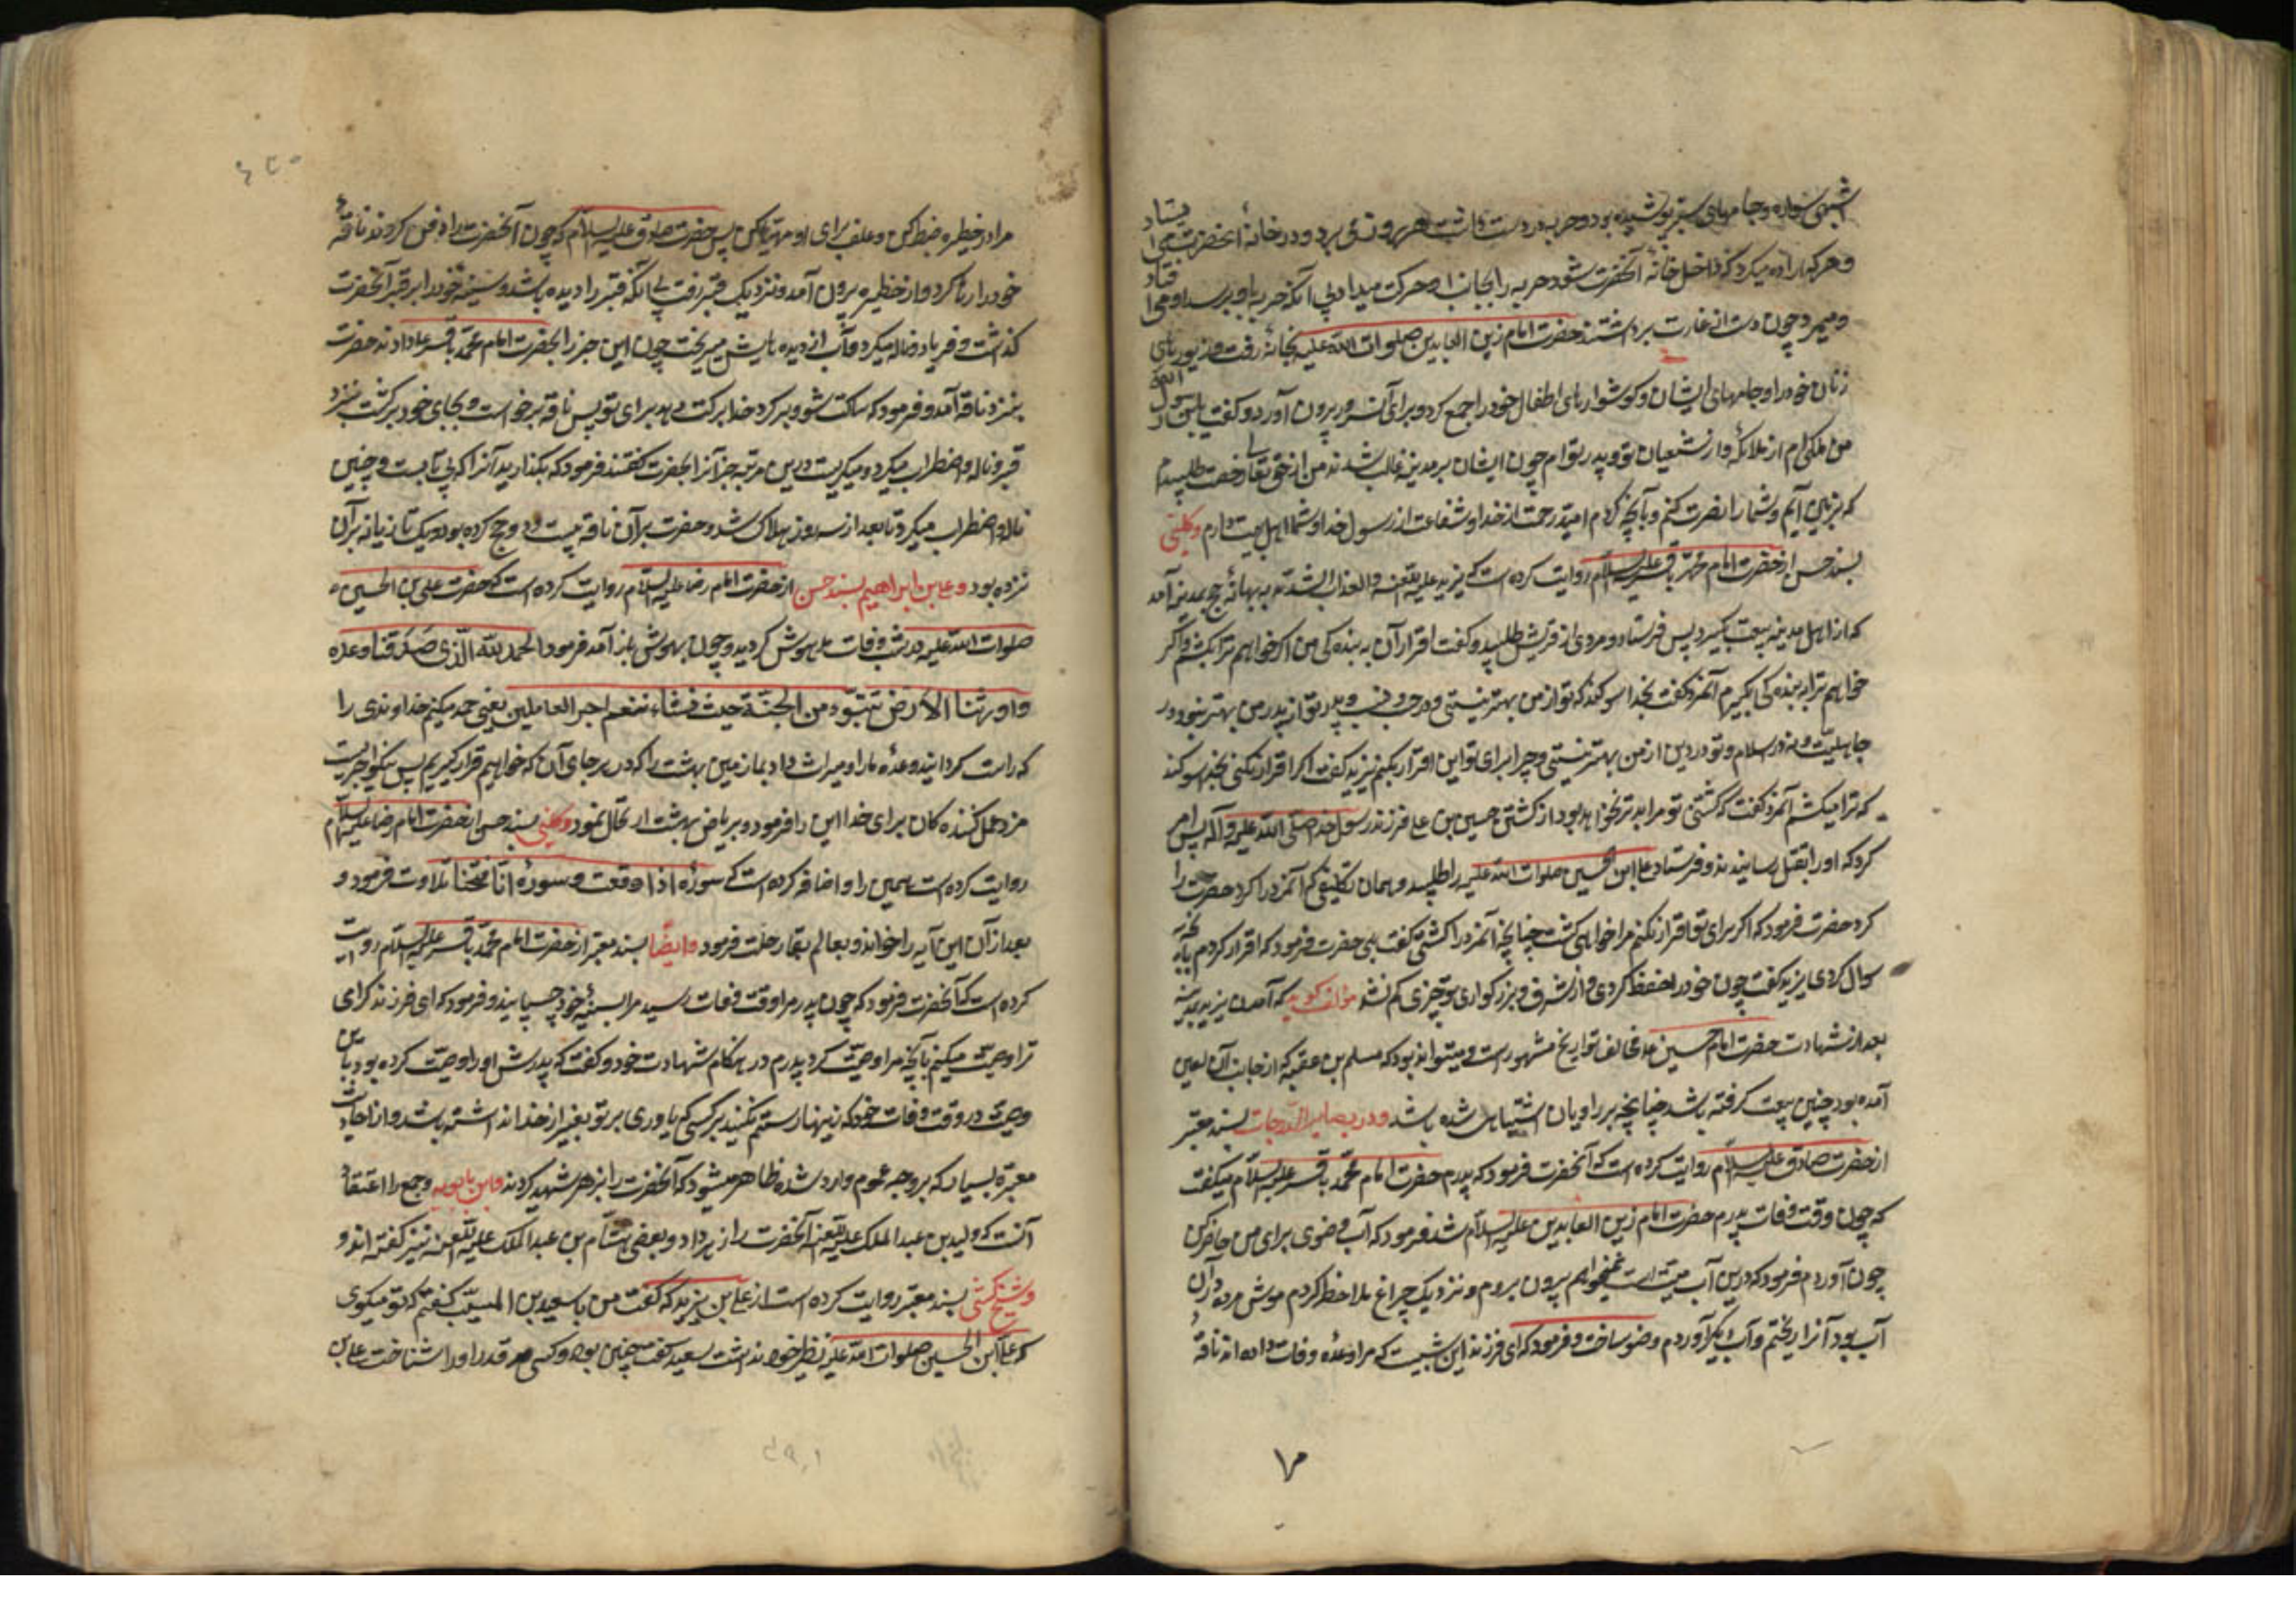 اشهبی سواره و جامهای سبز پوشیده بود و حربه در دست داشت هر روز می برد و در خانهٔ آنحضرت می ایستاد
و هر که اراده میکرد که داخل خانهٔ آنحضرت شود حربه را بجانب او حرکت میداد بی آنکه حربه باو برسد او می افتاد
و میمرد چون دست از غارت برداشتند حضرت امام زین العابدین صلوات الله علیه بخانه رفت و زیورهای
زنان خود را و جامهای ایشان و گوشوارهای اطفال خود را جمع کرد و برای آن سرور بیرون آورد و گفت یابن رسول الله
من ملکی ام از ملائکه و از شیعیان تو و پدر تو ام چون ایشان بر مدینه غالب شدند من از حق تعالی رخصت طلبیدم
که بزمین آیم و شما را نصرت کنم و بآنچه کردم امید رحمت از خدا و شفاعت از رسول خدا و شما اهل بیت دارم و کلینی
بسند حسن از حضرت امام محمد باقر علیه السلام روایت کرده است که یزید علیه اللعنه و العذاب الشدید به بهانهٔ حج بمدینه آمد
که از اهل مدینه بیعت بگیرد پس فرستاد و مردی از قریش طلبید و گفت اقرار آن به بنده کی من اگر خواهم ترا بکشم و اگر
خواهم ترا به بنده کی بگیرم آنمرد گفت بخدا سوگند که تو از من بهتر نیستی در حسب و نسب و پدر تو از پدر من بهتر نبود در
جاهلیت و نه در اسلام و تو در دین از من بهتر نیستی و چرا برای تو این اقرار بکنم یزید گفت اگر اقرار نکنی بخدا سوگند
که ترا میکشم آنمرد گفت که کشتن تو مرا بدتر نخواهد بود از کشتن حسین بن علی فرزند رسول خدا صلی الله علیه و آله پس امر
کرد که او را بقتل رسانیدند و فرستاد علی ابن الحسین صلوات الله علیه را طلبید و همان تکلیفی که آنمرد را کرد حضرت را
کرد حضرت فرمود که اگر برای تو اقرار نکنم مرا خواهی کشت چنانچه آنمرد را کشتی گفت بلی حضرت فرمود که اقرار کردم بآنچه
سوال کردی یزید گفت چون خود را حفظ کردی و از شرف و بزرگواری تو چیزی کم نشد مؤلف گوید که آمدن یزید بمدینه
بعد از شهادت حضرت امام حسین ع مخالف تواریخ مشهور است و میتواند بود که مسلم بن عقبه که از جانب آن لعین
آمده بود چنین بیعت گرفته باشد چنانچه بر راویان اشتباهی شده باشد و در بصایر الدرجات بسند معتبر
از حضرت صادق علیه السلام روایت کرده است که آنحضرت فرمود که پدرم حضرت امام محمد باقر علیه السلام میگفت
که چون وقت وفات پدرم حضرت امام زین العابدین علیه السلام شد فرمود که آب وضوی برای من حاضر کن
چون آوردم فرمود که درین آب میته است نمیخواهم بیرون بروم و نزدیک چراغ ملاحظه کردم موش مرده در آن
آب بود آنرا ریختم و آب دیگر آوردم وضو ساخت و فرمود که ای فرزند این شبیست که مرا وعدهٔ وفات داده اند ناقهٔ
مرا در خطیره ضبط کن و علف برای او مهیا کن پس حضرت صادق علیه السلام که چون آنحضرت را دفن کردند ناقهٔ
خود را رها کرد و از خطیره بیرون آمد و نزدیک قبر رفت بی آنکه قبر را دیده باشد و سینهٔ خود را بر قبر آنحضرت
گذاشت و فریاد و ناله میکرد و آب از دیده هایش میریخت چون این خبر را بحضرت امام محمد باقر ع دادند حضرت
بنزد ناقه آمد و فرمود که ساکت شو و برگرد خدا برکت دهد برای تو پس ناقه برخواست و بجای خود برگشت نزد
قبر و ناله و اضطراب میکرد و میگریست درین مرتبه خبر آنرا بحضرت گفتند فرمود که بگذارید آنرا که بی تابست و چنین
ناله و اضطراب میکرد تا بعد از سه روز هلاک شد و حضرت بر آن ناقه بیست و دو حج کرده بود و یک تازیانه بر آن
نزده بود و علی بن ابراهیم بسند حسن از حضرت امام رضا علیه السلام روایت کرده است که حضرت علی بن الحسین
صلوات الله علیه در شب وفات مدهوش گردید و چون بهوش باز آمد فرمود الحمد لله الذی صدقنا وعده
و اورثنا الارض نتبوّء من الجنة حیث نشاء فنعم اجر العاملین یعنی حمد میکنم خداوندی را
که راست گردانید وعدهٔ ما را و میراث داد بما زمین بهشت را که در هر جای آن که خواهیم قرار گیریم پس نیکو اجریست
مزد عمل کننده کان برای خدا این را فرمود و بریاض بهشت ارتحال نمود و کلینی بسند حسن از حضرت امام رضا علیه السلام
روایت کرده است همین را و اضافه کرده است که سورهٔ اذا وقعت و سورهٔ انا فتحنا تلاوت فرمود و
بعد از آن این آیه را خواند و بعالم بقا رحلت فرمود و ایضا بسند معتبر از حضرت امام محمد باقر علیه السلام روایت
کرده است که آنحضرت فرمود که چون پدر مرا وقت وفات رسید مرا بسینهٔ خود چسپانید و فرمود که ای فرزند گرامی
ترا وصیت میکنم بآنچه مرا وصیت کرد پدرم در هنگام شهادت خود و گفت که پدرش او را وصیت کرده بود باین
وصیت در وقت وفات خود که زینهار ستم مکنید بر کسی که یاوری بر تو بغیر از خدا نداشته باشد و از احادیث
معتبره بسیار که بر وجه عموم وارد شده ظاهر میشود که آنحضرت را بزهر شهید کردند و ابن بابویه و جمع را اعتقاد
آنست که ولید بن عبد الملک علیه اللعنه آنحضرت را زهر داد و بعضی هشام بن عبد الملک علیه اللعنه نیز گفته اند و
و شیخ کشی بسند معتبر روایت کرده است از علی بن یزید که گفت من با سعید بن المسیب گفتم که تو میگوی
که علی ابن الحسین صلوات الله علیه نظیر خود نداشت سعید گفت چنین بود و کسی قدر او را نشناخت علی بن